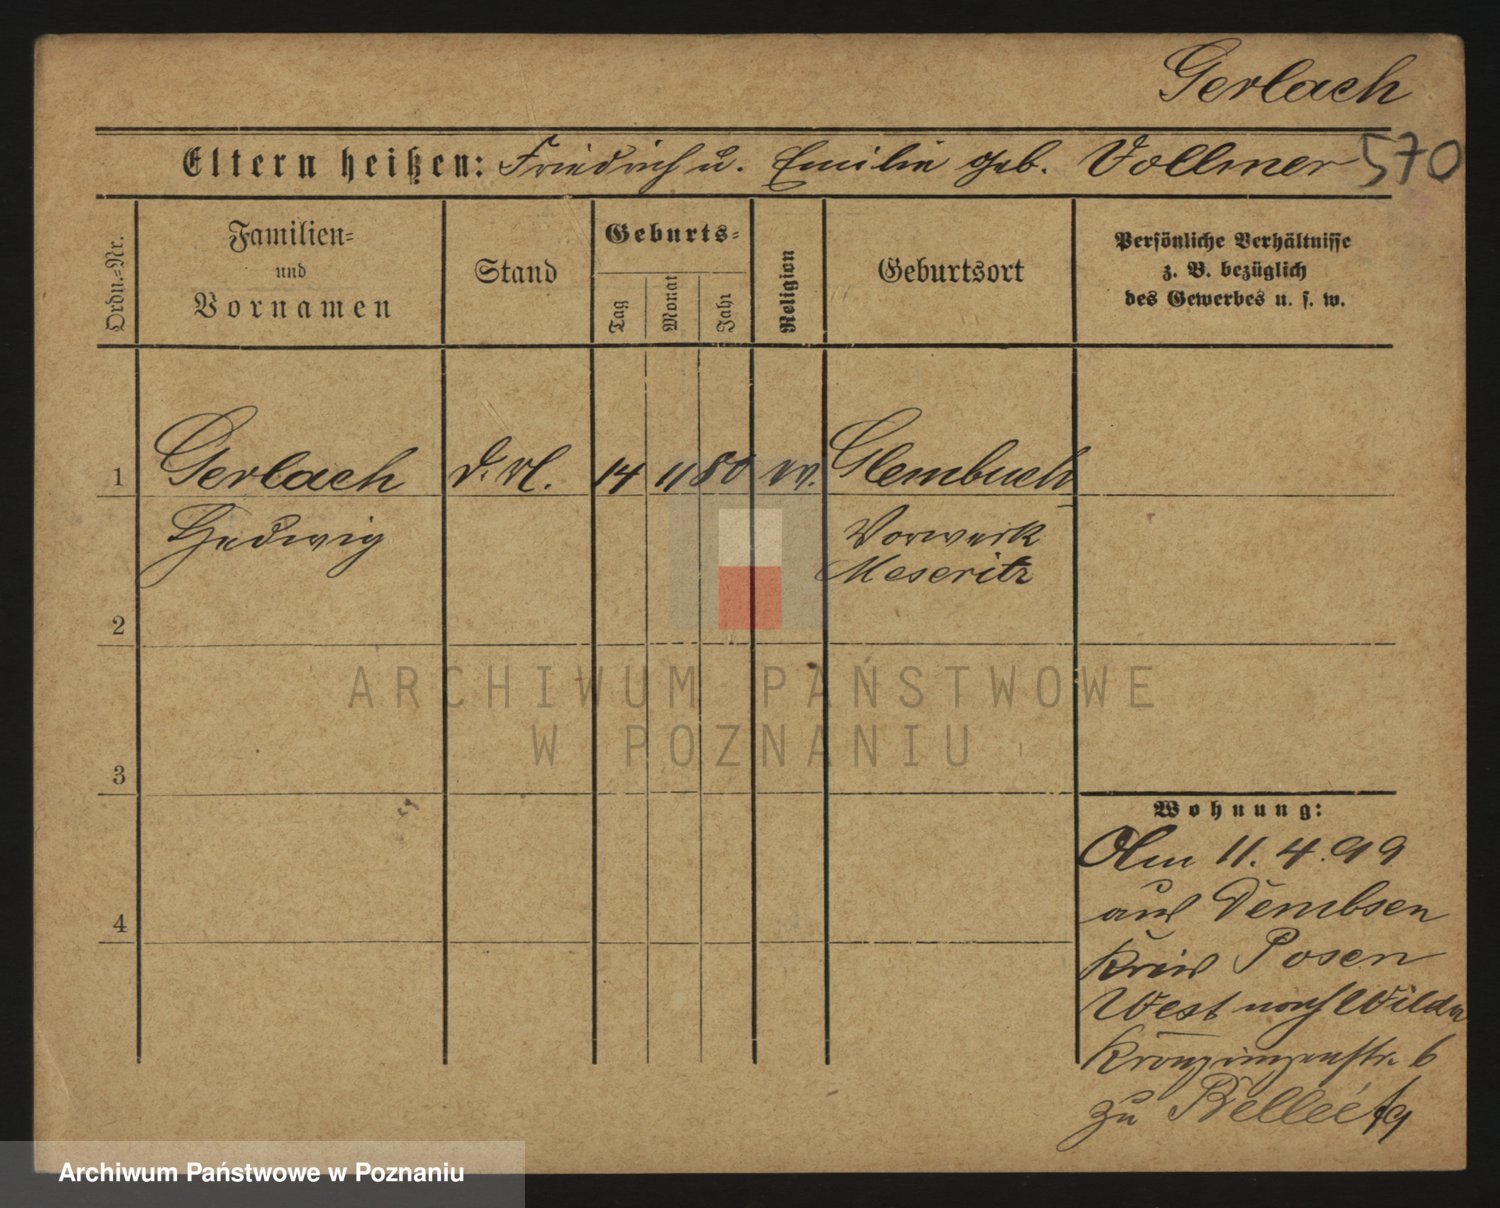 Gerlach
Eltern heißen: Friedrich u. Emilie geb. Vollmer 570
Ordn.-Nr.
Familien-
und
Vornamen
Stand
Geburts-
Tag
Monat
Jahr
Religion
Geburtsort
Persönliche Verhältnisse
z. B. bezüglich
des Gewerbes u. s. w.
1 Gerlach 14 11 80 Glembuch
Hedwig Vorwerk
Meseritz
2
3
4
Wohnung:
Am 11.4.99
aus Dembsen
Kreis Posen
West nach Wilda
Kronprinzenstr. 6
zu
ARCHIWUM PAŃSTWOWE
W POZNANIU
Archiwum Państwowe w Poznaniu